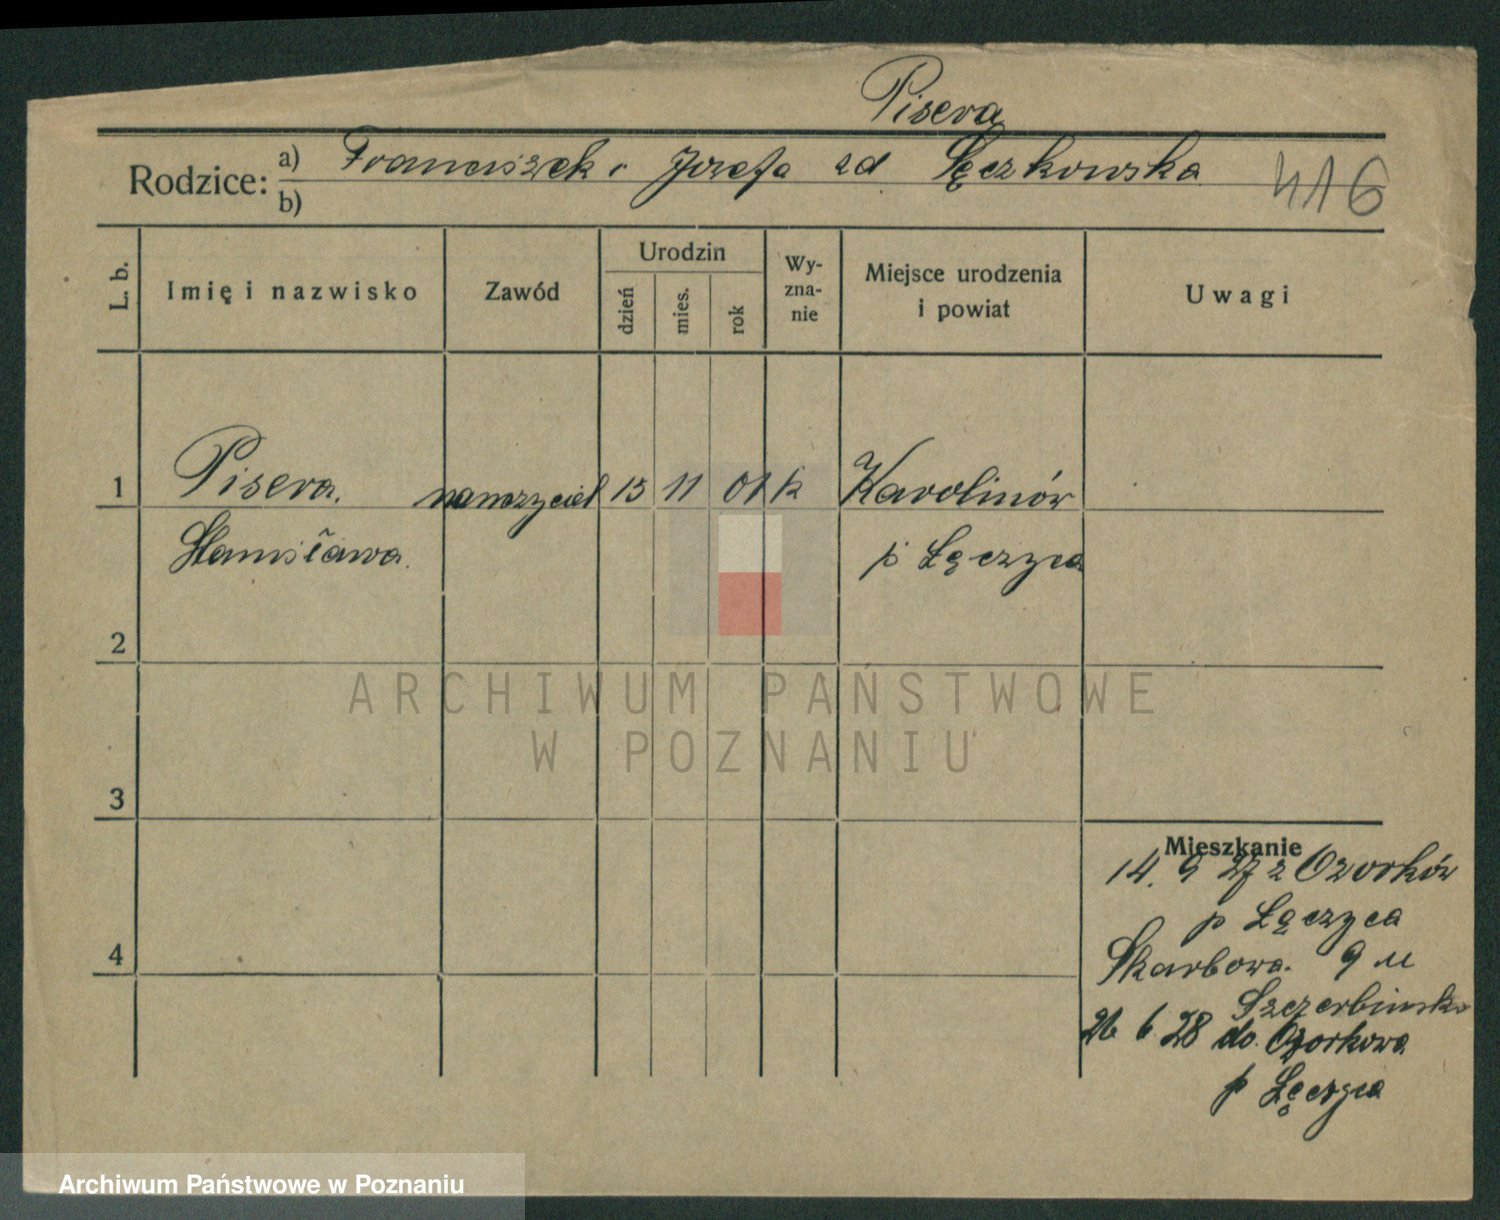 Pisera
Rodzice: a) Franciszek i Józefa zd Sęczkowska
b)
416
L. b. Imię i nazwisko Zawód Urodzin dzień mies. rok Wy-zna-nie Miejsce urodzenia i powiat Uwagi
1 Pisera nauczyciel 15 11 01 k Karolinów
Stanisława p Łęczyca
2
ARCHIWUM PAŃSTWOWE
W POZNANIU
3
Mieszkanie
14. 9 27 z Ozorków
p Łęczyca
4
Skarbowa 9 u
Szczerbinska
26 6 28 do Ozorkowa
p Łęczyca
Archiwum Państwowe w Poznaniu